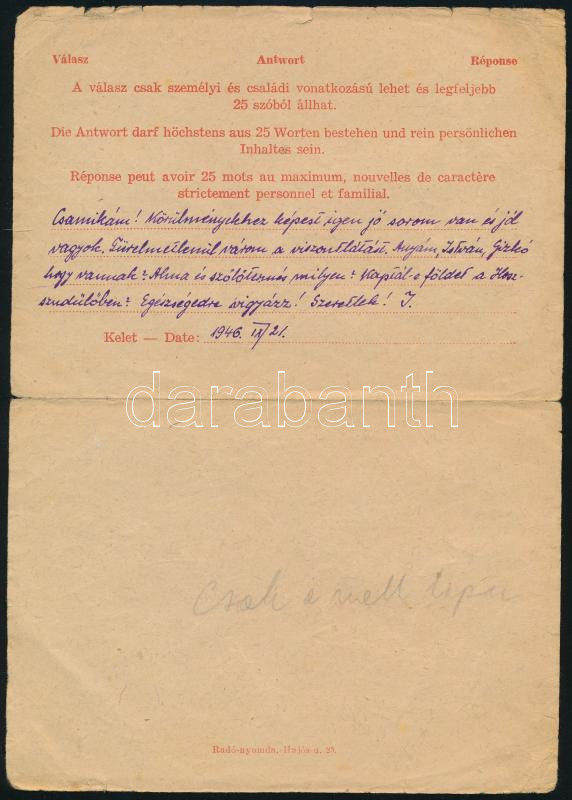 Válasz Antwort Réponse
A válasz csak személyi és családi vonatkozású lehet és legfeljebb
25 szóból állhat.
Die Antwort darf höchstens aus 25 Worten bestehen und rein persönlichen
Inhaltes sein.
Réponse peut avoir 25 mots au maximum, nouvelles de caractère
strictement personnel et familial.
Csamikám! Körülményekhez képest igen jó sorom van és jól
vagyok. Türelmetlenül várom a viszontlátást. Anyám, István, Gizkó
hogy vannak? Alma és szőlőtermés milyen? Kaptál-e földet a
Egészségedre vigyázz! Szeretlek! I.
Kelet — Date: 1946. IX/21.
darabanth
Csak a
Radó-nyomda, Hajós-u. 25.